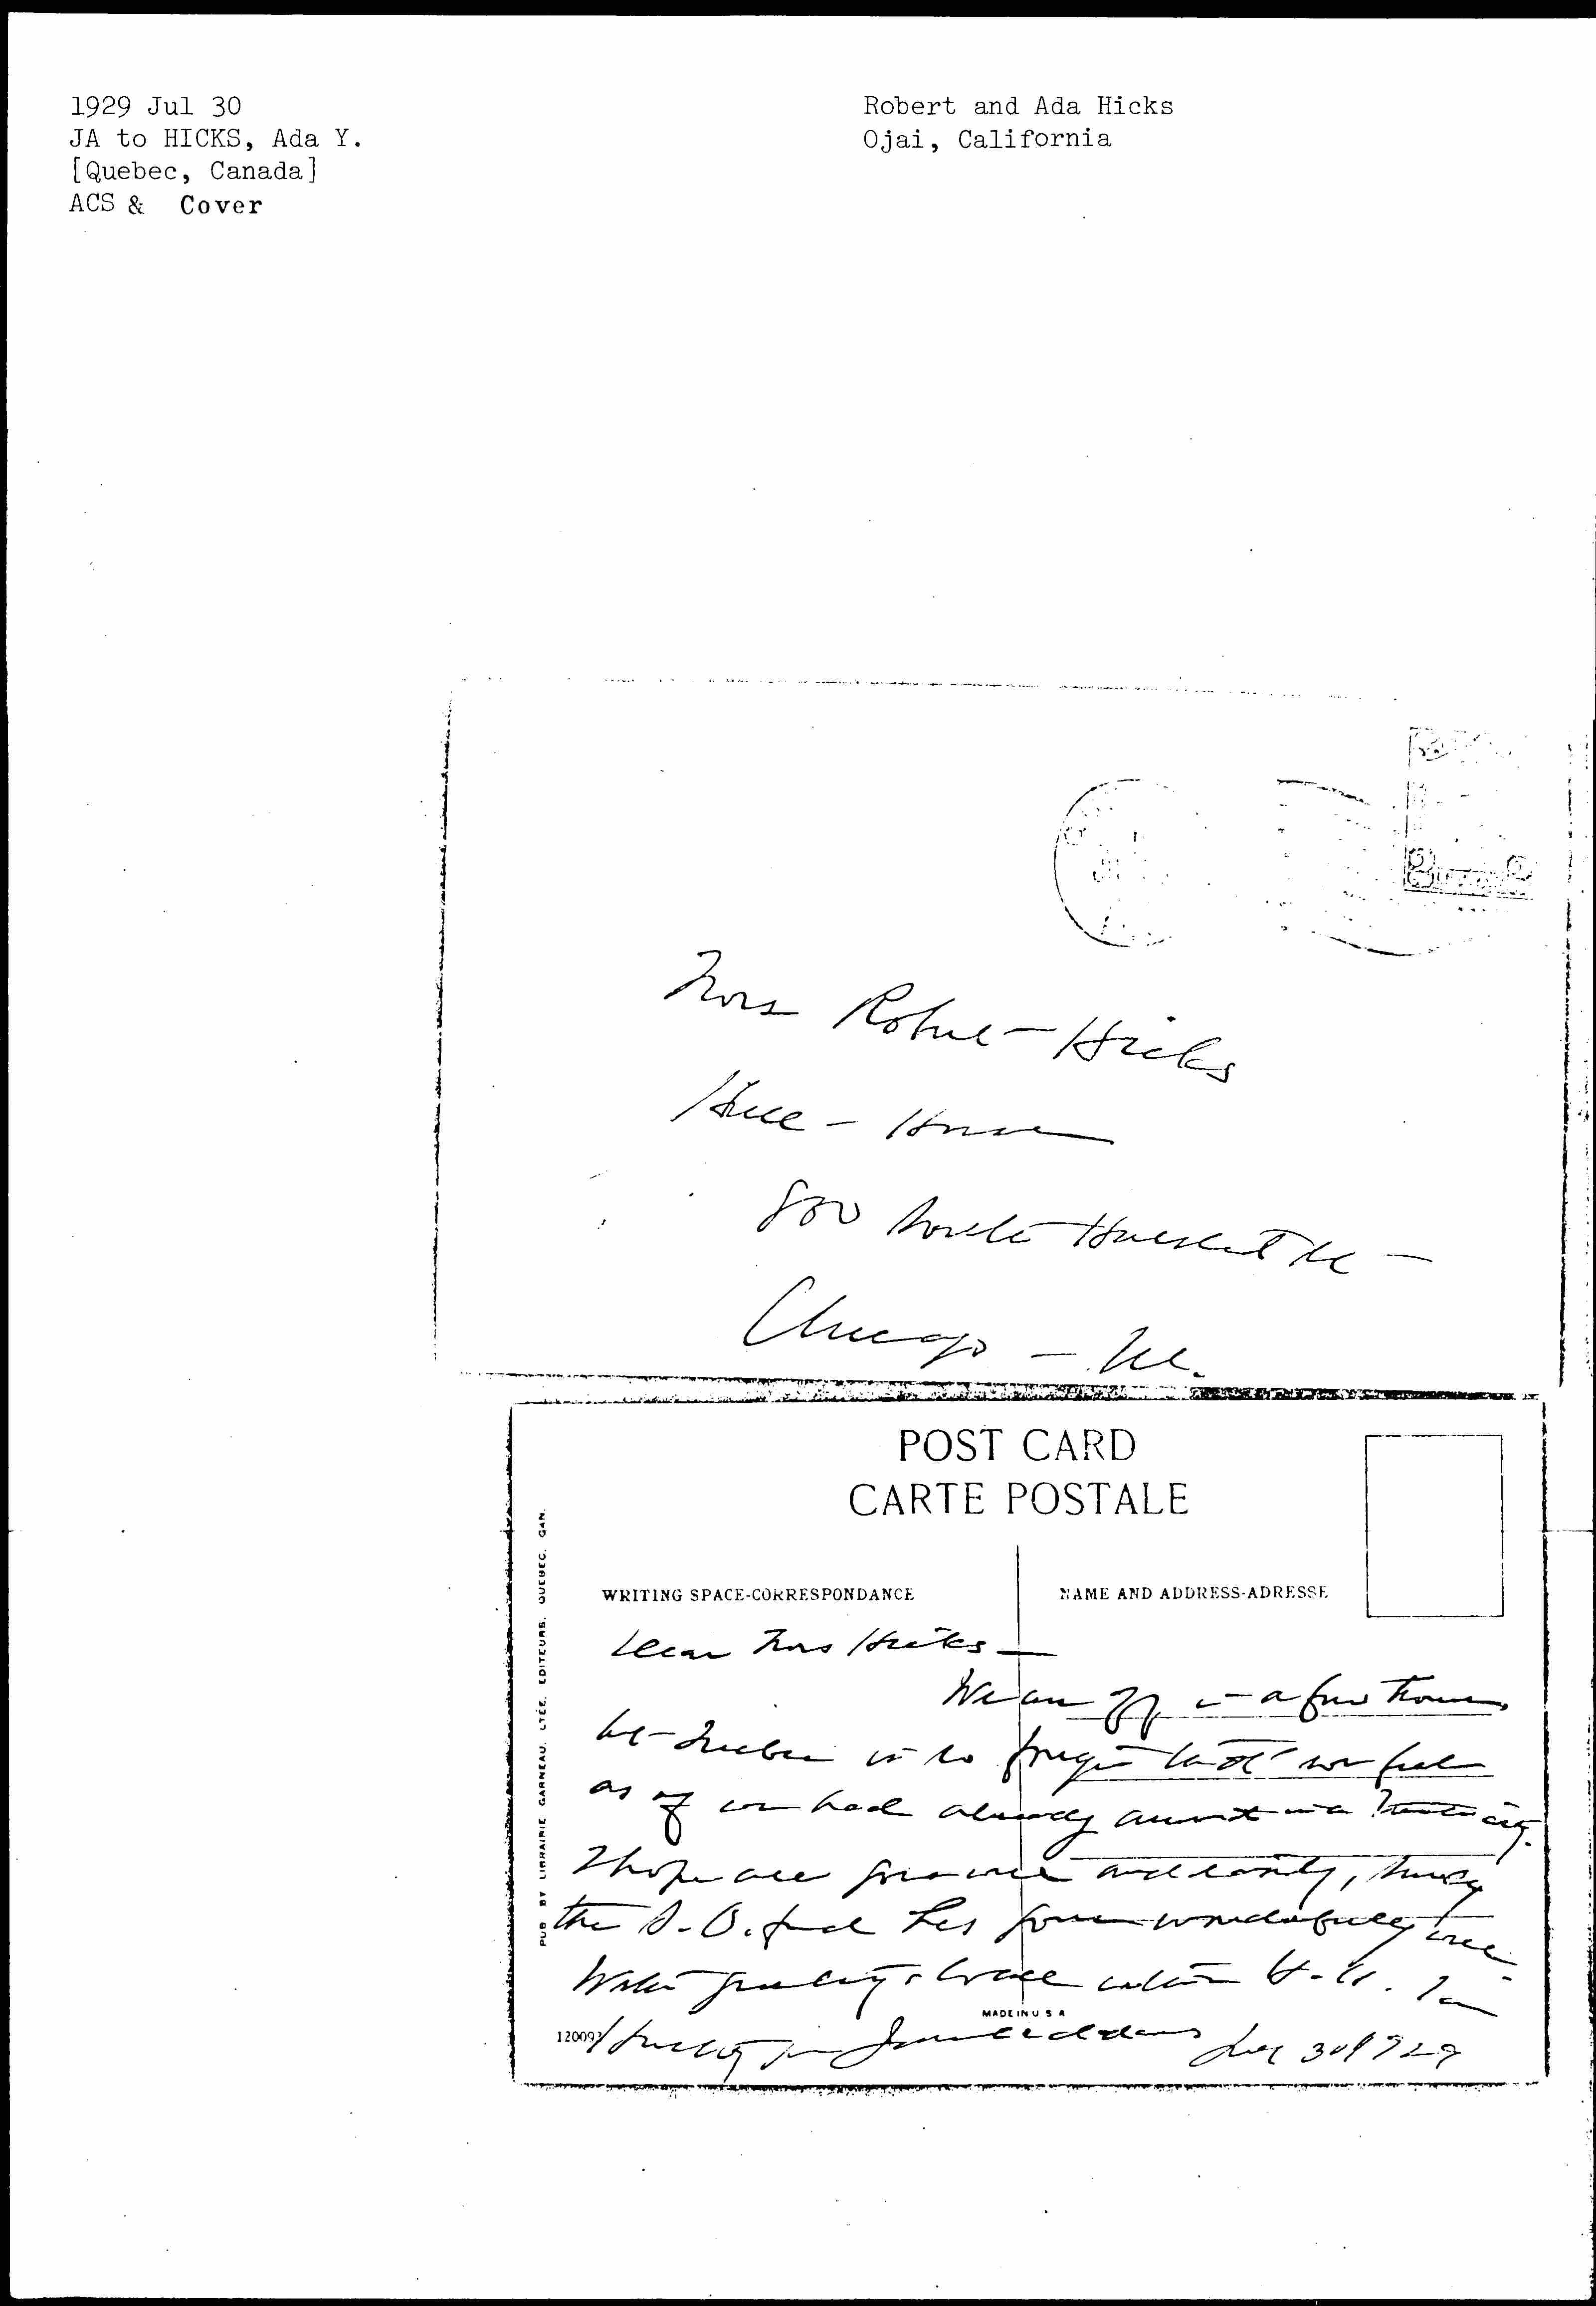 1929 Jul 30
JA to HICKS, Ada Y.
[Quebec, Canada]
ACS & Cover
Robert and Ada Hicks
Ojai, California
Mrs Robert Hicks
Hull-House
800 South Halsted St
Chicago - Ill.
POST CARD
CARTE POSTALE
PUB BY LIBRAIRIE GARNEAU. LTÉE. EDITEURS. QUEBEC. CAN.
WRITING SPACE-CORRESPONDANCE
NAME AND ADDRESS-ADRESSE
Dear Mrs Hicks -
We are off in a few hours
but Quebec is so foreign that we feel
as if we had already
I hope all goes well and
the
With greetings to all at H.H. I am
MADE IN U S A
120093
Jane Addams July 30 1929